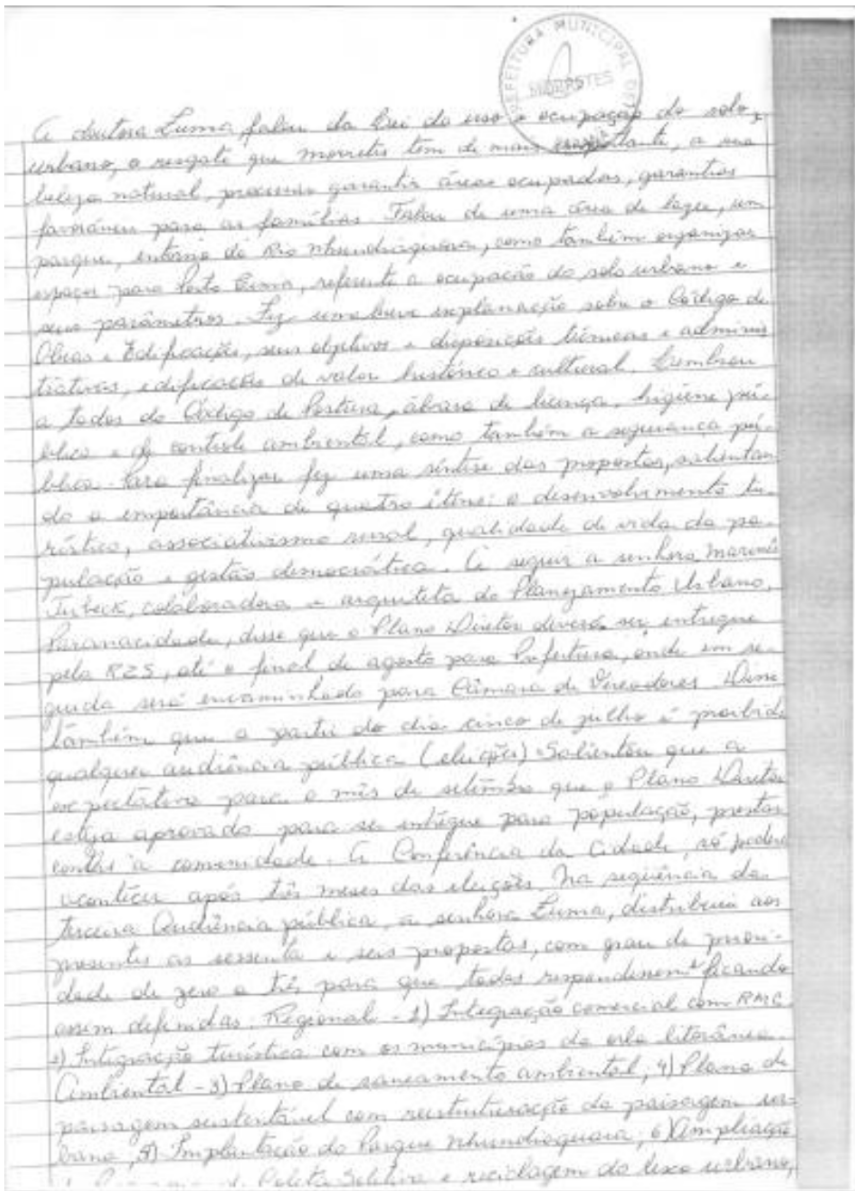 PREFEITURA MUNICIPAL DE
MORRETES
A doutora Luma falou da Lei do uso e ocupação do solo,
urbano, o resgate que morretes tem de mais importante, a sua
beleza natural, procurar garantir áreas ocupadas, garantias
favoráveis para as famílias. Falou de uma área de lazer, um
parque, entorno do Rio Nhundiaquara, como também organizar
espaços para Porto Cima, referente a ocupação do solo urbano e
seus parâmetros. Fez uma breve explanação sobre o Código de
Obras e Edificações, seus objetivos e disposições técnicas e adminis
trativas, edificações de valor histórico e cultural. Lembrou
a todos do Código de Postura, álvara de licença, higiene pú-
blica e de controle ambiental, como também a segurança pú-
blica. Para finalizar fez uma síntese das propostas, salientan
do a importância de quatro ítens: o desenvolvimento tu-
rístico, associativismo rural, qualidade de vida da po-
pulação e gestão democrática. A seguir a senhora
colaboradora e arquiteta do Planejamento Urbano,
Paranacidade, disse que o Plano Diretor deverá ser entregue
pela RZS, até o final de agosto para Prefeitura, onde em se-
guida será encaminhado para Câmara de Vereadores. Disse
também que a partir do dia cinco de julho é proibido
qualquer audiência pública (eleições). Salientou que a
expectativa para o mês de setembro que o Plano Diretor
esteja aprovado para ser entregue para população, prestar
contas a comunidade. A Conferência da Cidade, só poderá
acontecer após três meses das eleições. Na seqüência da
Terceira Audiência pública, a senhora Luma, distribuiu aos
presentes as sessenta e seis propostas, com grau de priori-
dade de zero a três para que todos respondessem ficando
assim definidas: Regional - 1) Integração comercial com RMC.
2) Integração turística com os municípios da orla litorânea.
Ambiental - 3) Plano de saneamento ambiental; 4) Plano de
paisagem sustentável com reestruturação da paisagem ur-
bana; 5) Implantação do Parque Nhundiaquara; 6) Ampliação
Coleta Seletiva e reciclagem do lixo urbano,